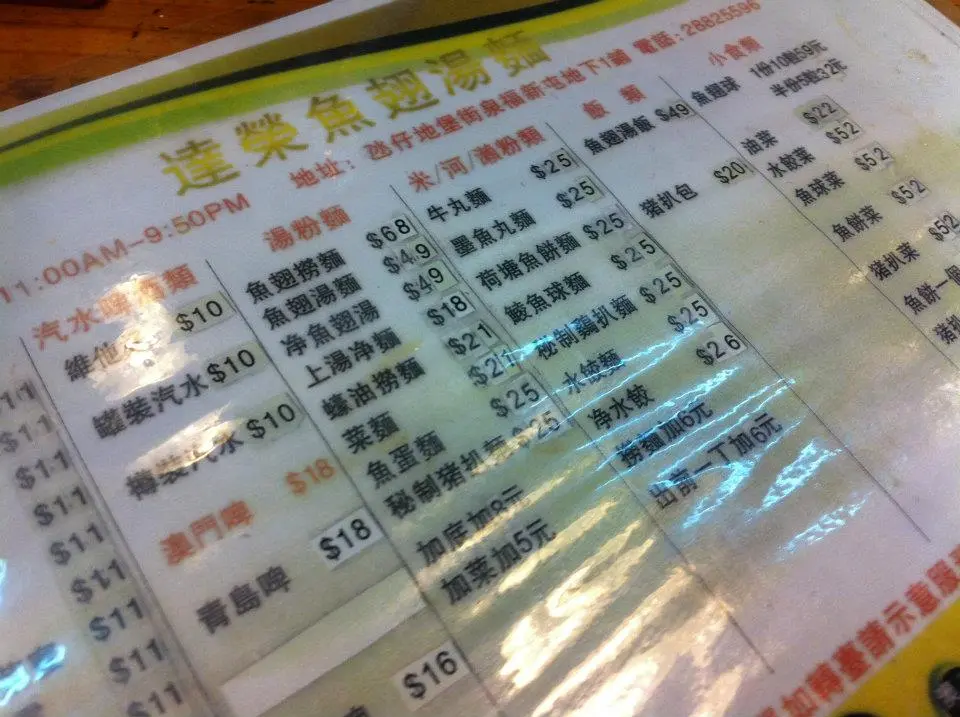 達榮魚翅湯麵
地址：氹仔地堡街泉福新屯地下1鋪 電話：28825596
11:00AM-9:50PM
$11
$11
$11
$11
$11
$11
$11
$11
$11
汽水啤酒類
維他 $10
罐裝汽水 $10
樽裝汽水 $10
澳門啤 $18
青島啤 $18
$16
湯粉麵
魚翅撈麵 $68
魚翅湯麵 $49
净魚翅湯 $49
上湯净麵 $18
蠔油撈麵 $21
菜麵 $21
魚蛋麵 $25
秘制豬扒麵 $25
加底加8元
加菜加5元
米/河/瀨粉麵
牛丸麵 $25
墨魚丸麵 $25
荷塘魚餅麵 $25
鯪魚球麵 $25
秘制鷄扒麵 $25
水餃麵 $25
净水餃 $26
撈麵加6元
出前一丁加6元
飯類
魚翅湯飯 $49
豬扒包 $20
小食類
魚翅球 1份10粒59元
半份5粒32元
油菜 $22
水餃菜 $52
魚球菜 $52
魚餅菜 $52
豬扒菜 $52
魚餅一個
豬扒
加轉臺請示意服